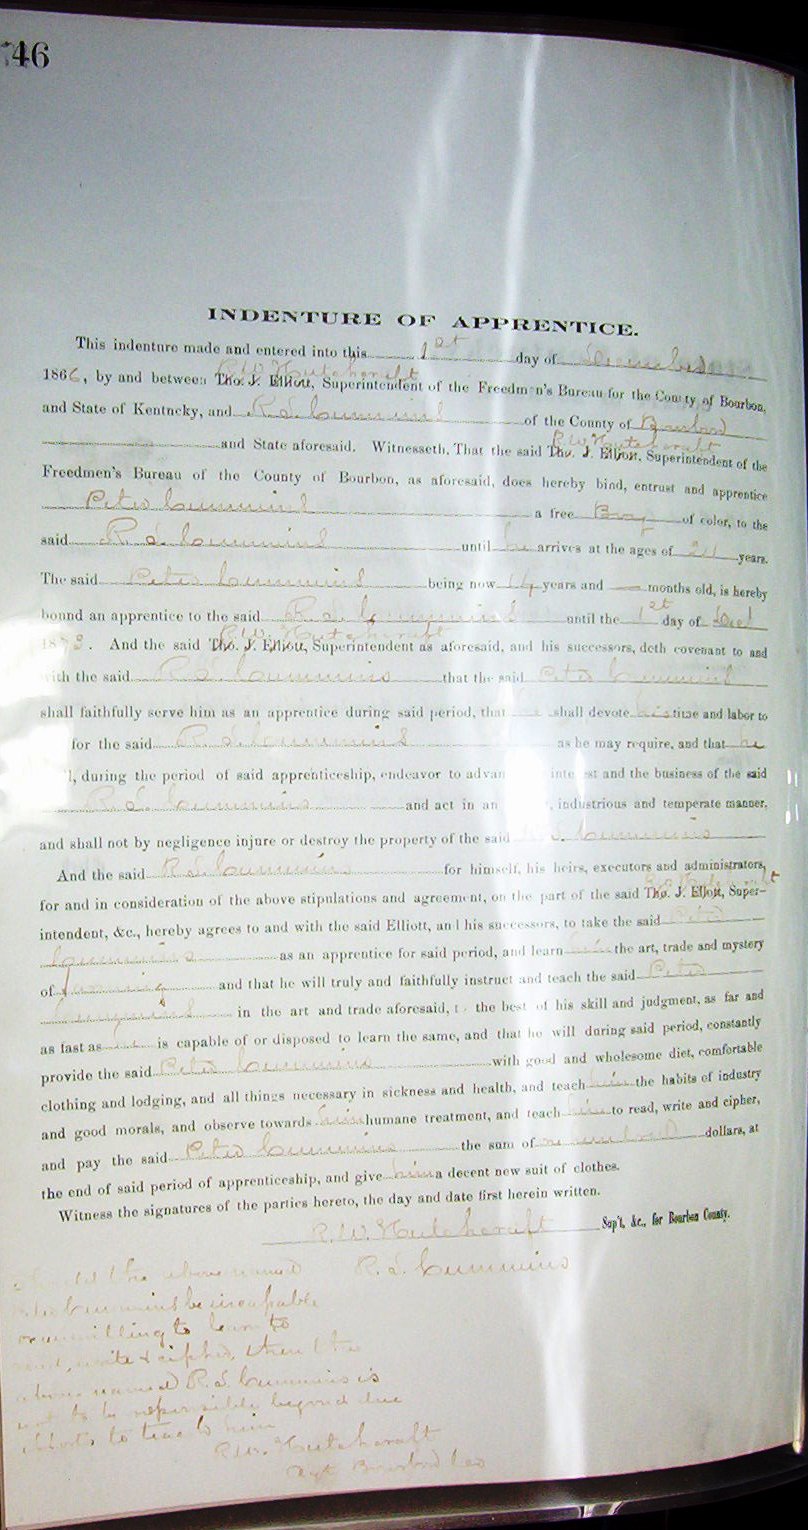 46
INDENTURE OF APPRENTICE.
This indenture made and entered into this 1st day of December
1866, by and between Tho. J. Elliott, R.W. Hutchcraft Superintendent of the Freedmen's Bureau for the County of Bourbon,
and State of Kentucky, and R. L. Cummins of the County of Bourbon
and State aforesaid. Witnesseth, That the said Tho. J. Elliott, R.W. Hutchcraft Superintendent of the
Freedmen's Bureau of the County of Bourbon, as aforesaid, does hereby bind, entrust and apprentice
Peter Cummins a free Boy of color, to the
said R. L. Cummins until he arrives at the ages of 21 years.
The said Peter Cummins being now 14 years and — months old, is hereby
bound an apprentice to the said R. L. Cummins until the 1st day of Dec
1873. And the said Tho. J. Elliott, R.W. Hutchcraft Superintendent as aforesaid, and his successors, doth covenant to and
with the said R. L. Cummins that the said Peter Cummins
shall faithfully serve him as an apprentice during said period, that he shall devote his time and labor to
for the said R. L. Cummins as he may require, and that he
l, during the period of said apprenticeship, endeavor to advan interest and the business of the said
R. L. Cummins and act in an , industrious and temperate manner,
and shall not by negligence injure or destroy the property of the said R. L. Cummins
And the said R. L. Cummins for himself, his heirs, executors and administrators,
for and in consideration of the above stipulations and agreement, on the part of the said Tho. J. Elliott, R.W. Hutchcraft Super-
intendent, &c., hereby agrees to and with the said Elliott, and his successors, to take the said Peter
Cummins as an apprentice for said period, and learn him the art, trade and mystery
of farming and that he will truly and faithfully instruct and teach the said Peter
Cummins in the art and trade aforesaid, to the best of his skill and judgment, as far and
as fast as he is capable of or disposed to learn the same, and that he will during said period, constantly
provide the said Peter Cummins with good and wholesome diet, comfortable
clothing and lodging, and all things necessary in sickness and health, and teach him the habits of industry
and good morals, and observe towards him humane treatment, and teach him to read, write and cipher,
and pay the said Peter Cummins the sum of one hundred dollars, at
the end of said period of apprenticeship, and give him a decent new suit of clothes.
Witness the signatures of the parties hereto, the day and date first herein written.
R.W. Hutchcraft Sup't, &c., for Bourbon County.
R. L. Cummins
Should the above named
Peter Cummins be incapable
or unwilling to learn to
read, write & cipher, then the
above named R. L. Cummins is
not to be responsible beyond due
efforts to teach him
R.W. Hutchcraft
Agt Bourbon Co